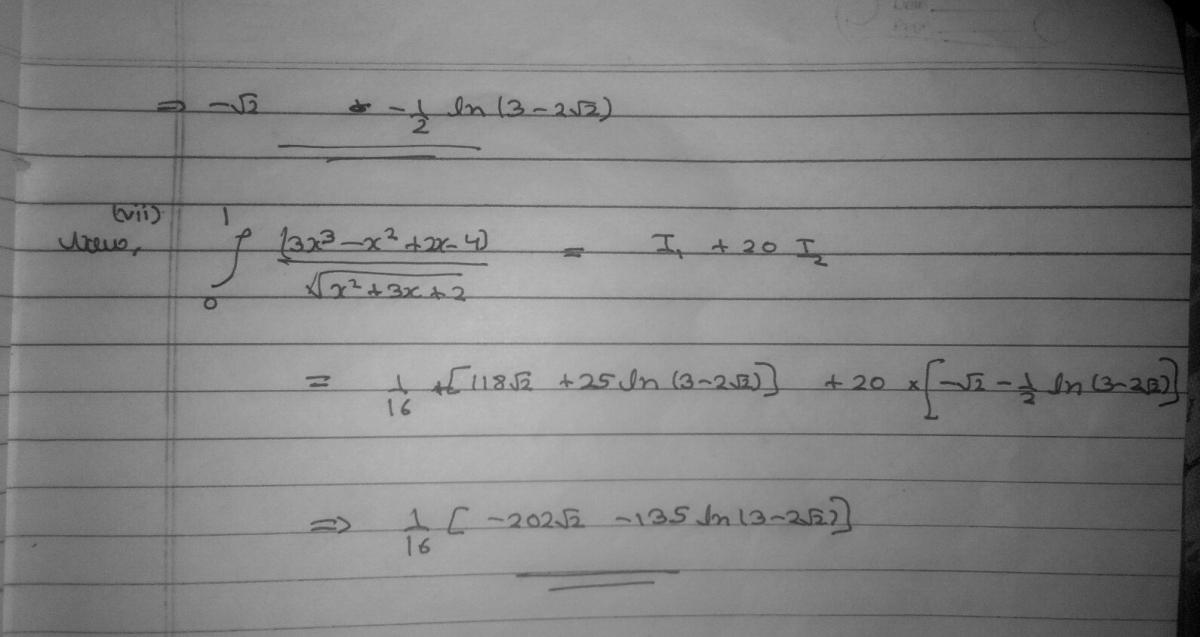 ⇒ -√2 - 1/2 ln (3-2√2)
(vii)
∫₀¹ (3x³-x²+2x-4) / √(x²+3x+2) = I₁ + 20 I₂
= 1/16 [118√2 + 25 ln (3-2√2)] + 20 × [-√2 - 1/2 ln (3-2√2)]
⇒ 1/16 [-202√2 - 135 ln (3-2√2)]